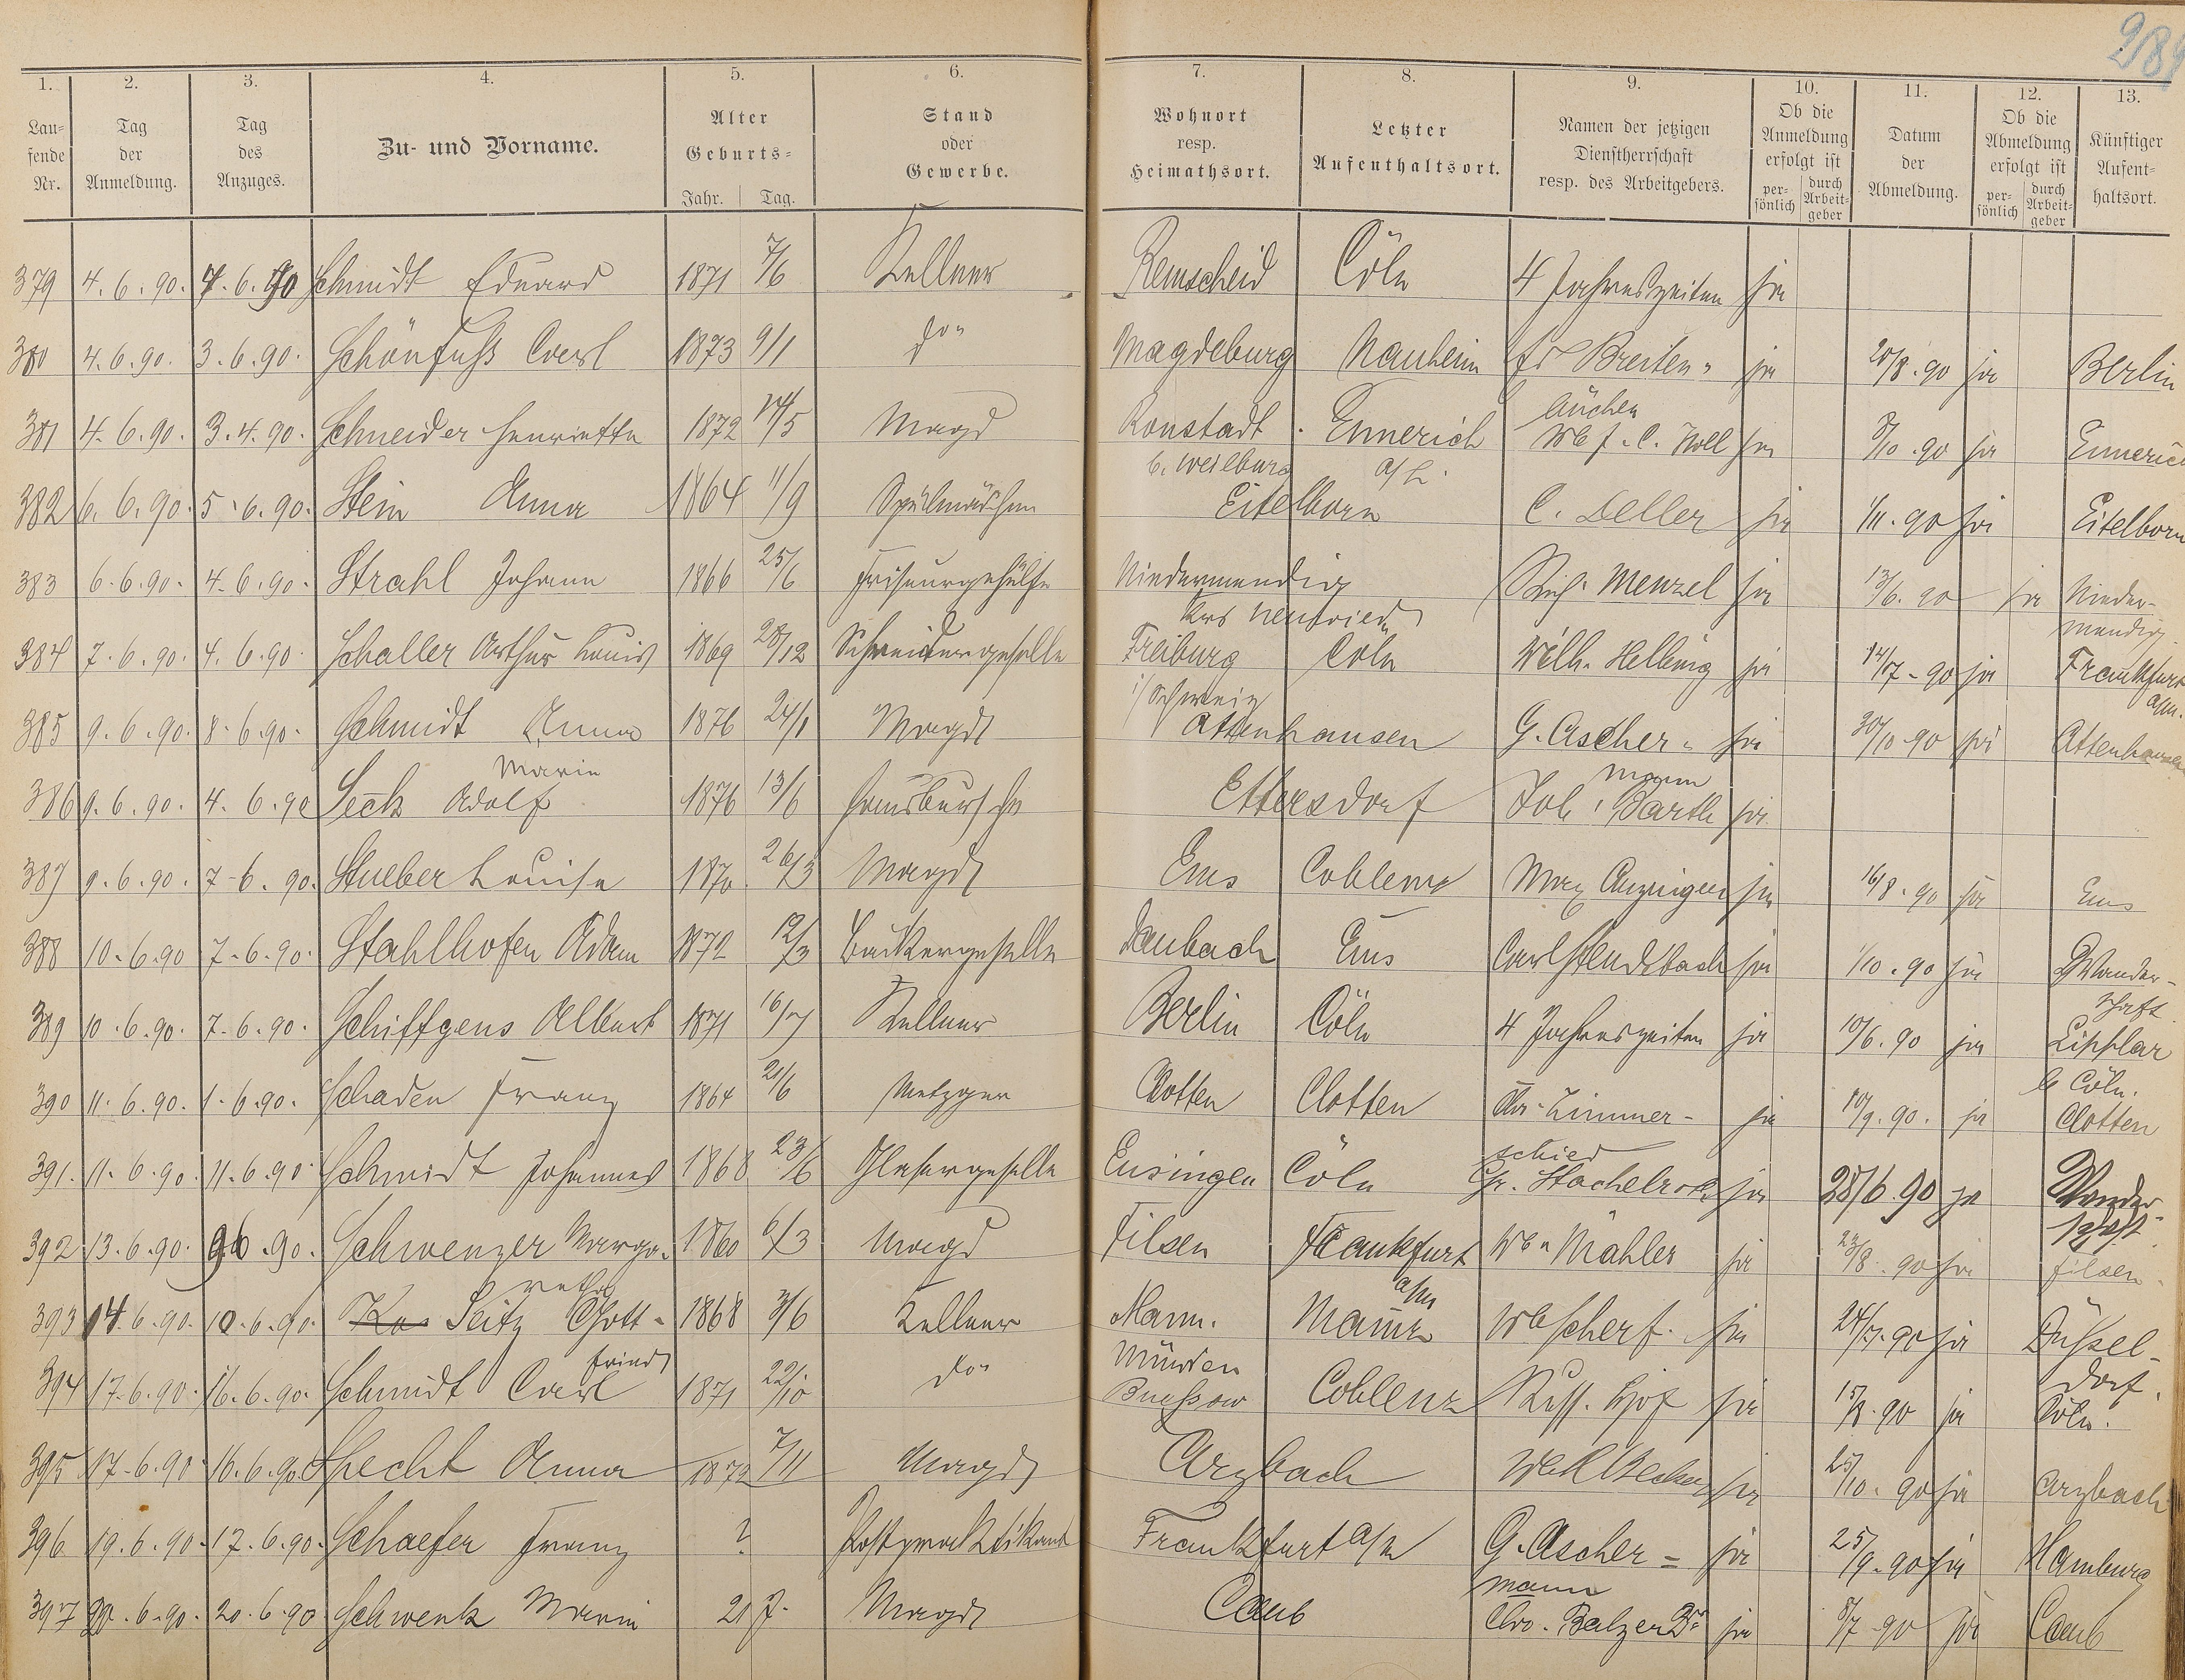 289
1. 2. 3. 4. 5. 6. 7. 8. 9. 10. 11. 12. 13.
Lau=fende Nr. Tag der Anmeldung. Tag des Anzuges. Zu- und Vorname. Alter Geburts= Jahr. Tag. Stand oder Gewerbe. Wohnort resp. Heimathsort. Letzter Aufenthaltsort. Namen der jetzigen Dienstherrschaft resp. des Arbeitgebers. Ob die Anmeldung erfolgt ist per=sönlich durch Arbeit=geber Datum der Abmeldung. Ob die Abmeldung erfolgt ist per=sönlich durch Arbeit=geber Künftiger Aufent=haltsort.
379 4.6.90. 4.6.90 Schmidt Eduard 1871 7/6 Kellner Remscheid Cöln 4 Jahreszeiten ja
380 4.6.90. 3.6.90. Schönfuß Carl 1873 9/1 do Magdeburg Nauheim Breiten- ja 20/8.90 ja Berlin
381 4.6.90. 3.4.90. Schneider Henriette 1872 14/5 Magd Ronstadt Emmerich ja .90 ja Emmerich
b. Weilburg
382 6.6.90. 5.6.90. Stein Anna 1864 11/9 Spülmädchen Eitelborn C. Deller ja 1/11.90 ja Eitelborn
383 6.6.90. 4.6.90. Strahl Johann 1866 25/6 Friseurgehülfe Niedermendig Menzel ja 13/6.90 ja Nieder-
Neuwied mendig
384 7.6.90. 4.6.90. Schaller Arthur Louis 1869 28/12 Schneidergeselle Freiburg Cöln Wilh. Helbing ja 14/7-90 ja Frankfurt
i/Schweiz a/m.
385 9.6.90. 8.6.90. Schmidt Anna 1876 24/1 Magd Attenhausen G. Ascher- ja 30/10.90 ja Attenhausen
Marie mann
386 9.6.90. 4.6.90 Seck Adolf 1876 13/6 Hausbursche Ettersdorf Joh. Barth ja
387 9.6.90. 7-6.90. Stueber Louise 1870 26/3 Magd Ems Coblenz Max Anzinger ja 16/8.90 ja Ems
388 10.6.90 7.6.90. Stahlhofen Adam 1872 12/3 Bäckergeselle Daubach Ems Carl ja 1/10.90 ja Wander-
schaft
389 10.6.90. 7-6.90. Schiffgens Albert 1871 16/7 Kellner Berlin Cöln 4 Jahreszeiten ja 10/6.90 ja Lipplar
b Cöln.
390 11.6.90. 1.6.90. Schaden Franz 1864 21/6 Metzger Clotten Clotten Zimmer- ja 10/9.90. ja Clotten
schied
391. 11.6.90 11.6.90 Schmidt Johannes 1868 23/6 Glasergeselle Ensingen Cöln ja 28/6.90 ja Wander-
schaft
392 13.6.90. 9.6.90. Schwenzer Marga- 1860 6/3 Magd Filsen Frankfurt Mähler ja 23/8.90 ja Filsen
retha a/m
393 14.6.90. 10.6.90. Seitz Gott- 1868 3/6 Kellner Mann. Mainz Scherf. ja 24/7.90 ja Düssel-
fried Münden dorf.
394 17.6.90. 16.6.90. Schmidt Carl 1871 22/10 do Buessow Coblenz Russ. Hof ja .90 ja Cöln.
395 17-6.90 16.6.90 Specht Anna 1872 7/11 Magd Arzbach Becker ja 25/10.90 ja Arzbach
396 19.6.90 17.6.90. Schaefer Franz ? Postpraktikant Frankfurt a/m G. Ascher= ja 25/9.90 ja Hamburg
mann
397 20.6.90. 20.6.90 Schwenk Marie 21 J. Magd Caub Chr. Balzer ja 8/7 90 ja Caub